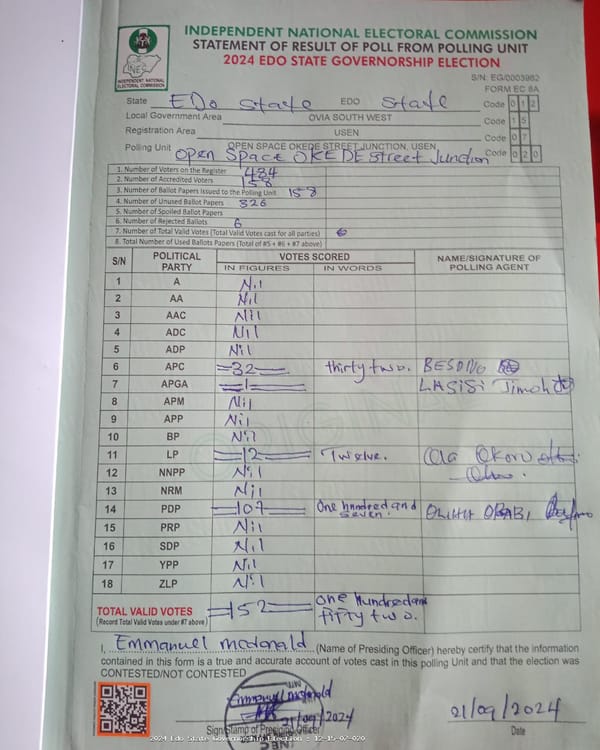 INDEPENDENT NATIONAL ELECTORAL COMMISSION
STATEMENT OF RESULT OF POLL FROM POLLING UNIT
2024 EDO STATE GOVERNORSHIP ELECTION
INDEPENDENT NATIONAL ELECTORAL COMMISSION
S/N: EG/0003962
FORM EC 8A
State EDo State EDO State Code 0 1 2
Local Government Area OVIA SOUTH WEST Code 1 5
Registration Area USEN Code 0 7
Polling Unit OPEN SPACE OKEDE STREET JUNCTION, USEN Code 0 2 0
Open Space OKEDE Street Junction
1. Number of Voters on the Register 484
2. Number of Accredited Voters 158
3. Number of Ballot Papers Issued to the Polling Unit 158
4. Number of Unused Ballot Papers 326
5. Number of Spoiled Ballot Papers
6. Number of Rejected Ballots 6
7. Number of Total Valid Votes (Total Valid Votes cast for all parties)
8. Total Number of Used Ballots Papers (Total of #5 + #6 + #7 above)
S/N POLITICAL PARTY VOTES SCORED NAME/SIGNATURE OF POLLING AGENT
IN FIGURES IN WORDS
1 A Nil
2 AA Nil
3 AAC Nil
4 ADC Nil
5 ADP Nil
6 APC =32= thirty two.
7 APGA =1= LASISI Jimoh
8 APM Nil
9 APP Nil
10 BP Nil
11 LP =12= Twelve.
12 NNPP Nil
13 NRM Nil
14 PDP =107= One hundred and seven.
15 PRP Nil
16 SDP Nil
17 YPP Nil
18 ZLP Nil
TOTAL VALID VOTES =152= One Hundred and fifty two.
(Record Total Valid Votes under #7 above)
I, Emmanuel mcdonald (Name of Presiding Officer) hereby certify that the information
contained in this form is a true and accurate account of votes cast in this polling Unit and that the election was
CONTESTED/NOT CONTESTED
Emmanuel mcdonald
21/09/2024
21/09/2024
Sign/Stamp of Presiding Officer
Date
INEC
2024 Edo State Governorship Election : 12-15-07-020